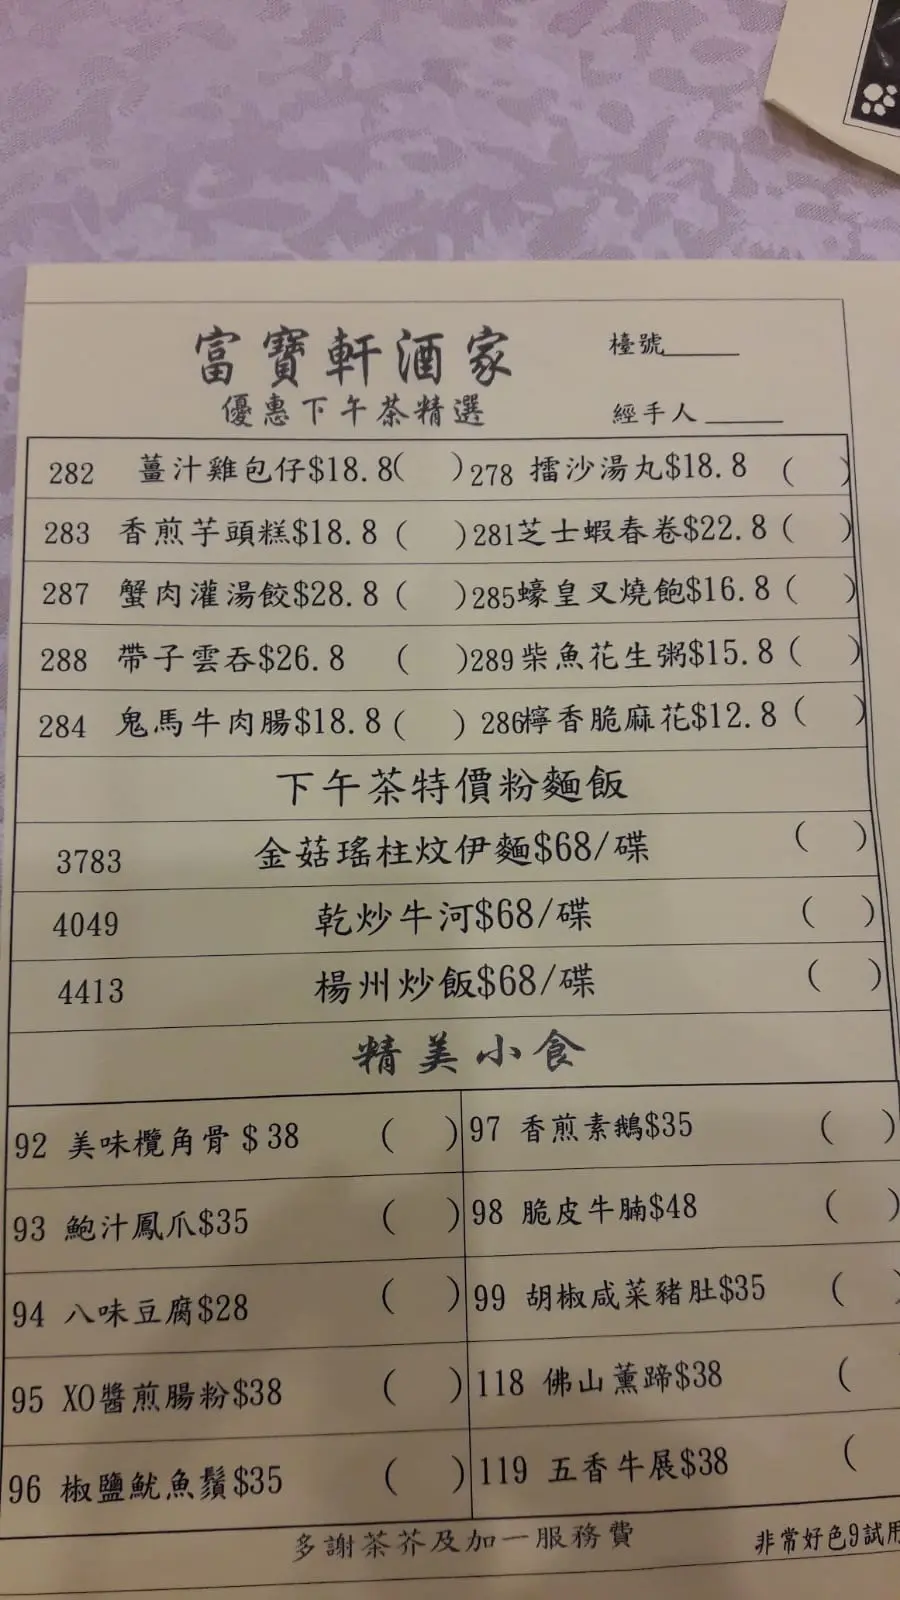 富寶軒酒家
檯號_____
優惠下午茶精選
經手人_____
282 薑汁雞包仔$18.8( ) 278 擂沙湯丸$18.8 ( )
283 香煎芋頭糕$18.8 ( ) 281芝士蝦春卷$22.8 ( )
287 蟹肉灌湯餃$28.8 ( ) 285蠔皇叉燒飽$16.8 ( )
288 帶子雲吞$26.8 ( ) 289 柴魚花生粥$15.8 ( )
284 鬼馬牛肉腸$18.8 ( ) 286檸香脆麻花$12.8 ( )
下午茶特價粉麵飯
3783 金菇瑤柱炆伊麵$68/碟 ( )
4049 乾炒牛河$68/碟 ( )
4413 楊州炒飯$68/碟 ( )
精美小食
92 美味欖角骨 $38 ( ) 97 香煎素鵝$35 ( )
93 鮑汁鳳爪$35 ( ) 98 脆皮牛腩$48 ( )
94 八味豆腐$28 ( ) 99 胡椒咸菜豬肚$35 (
95 XO醬煎腸粉$38 ( ) 118 佛山薰蹄$38 (
96 椒鹽魷魚鬚$35 ( ) 119 五香牛展$38 (
多謝茶芥及加一服務費
非常好色9試用